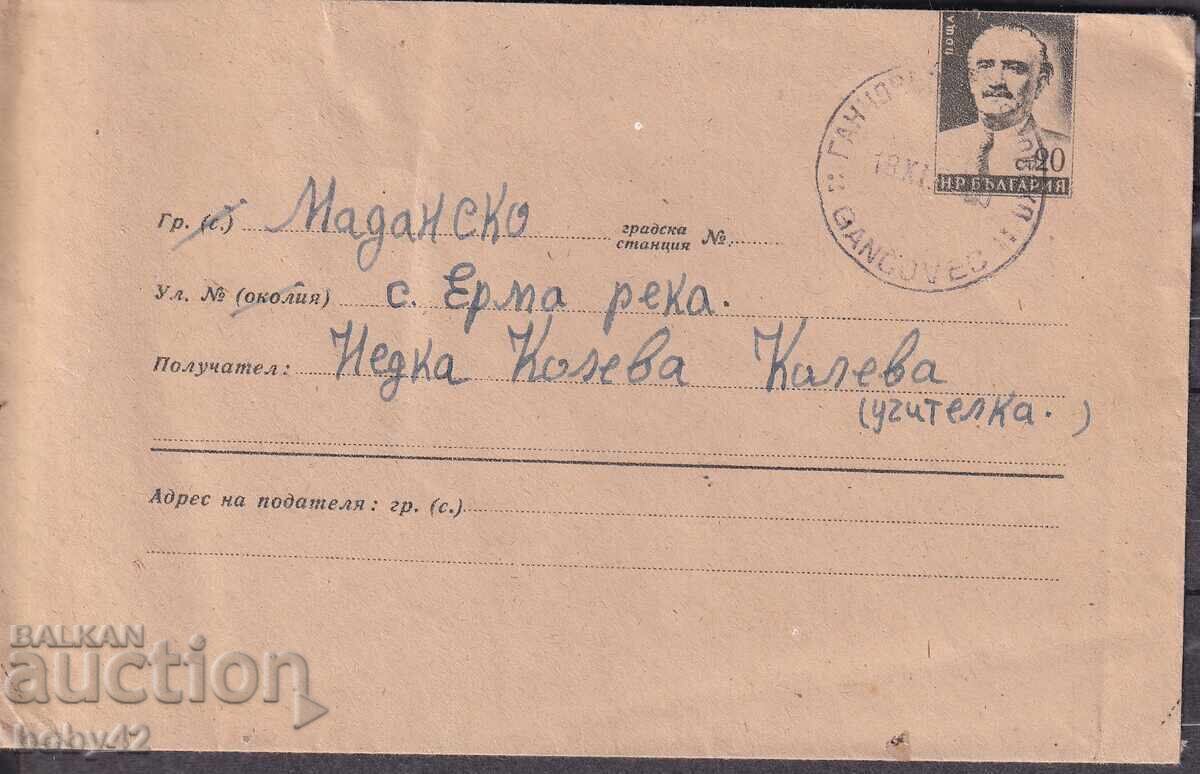 ПОЩА
20
Н.Р. БЪЛГАРИЯ
GANCOVEC
Гр. (с.) Маданско градска станция №
Ул. № (околия) с. Ерма река.
Получател: Недка Колева Калева
(учителка.)
Адрес на подателя: гр. (с.)
BALKAN
auction
boby42